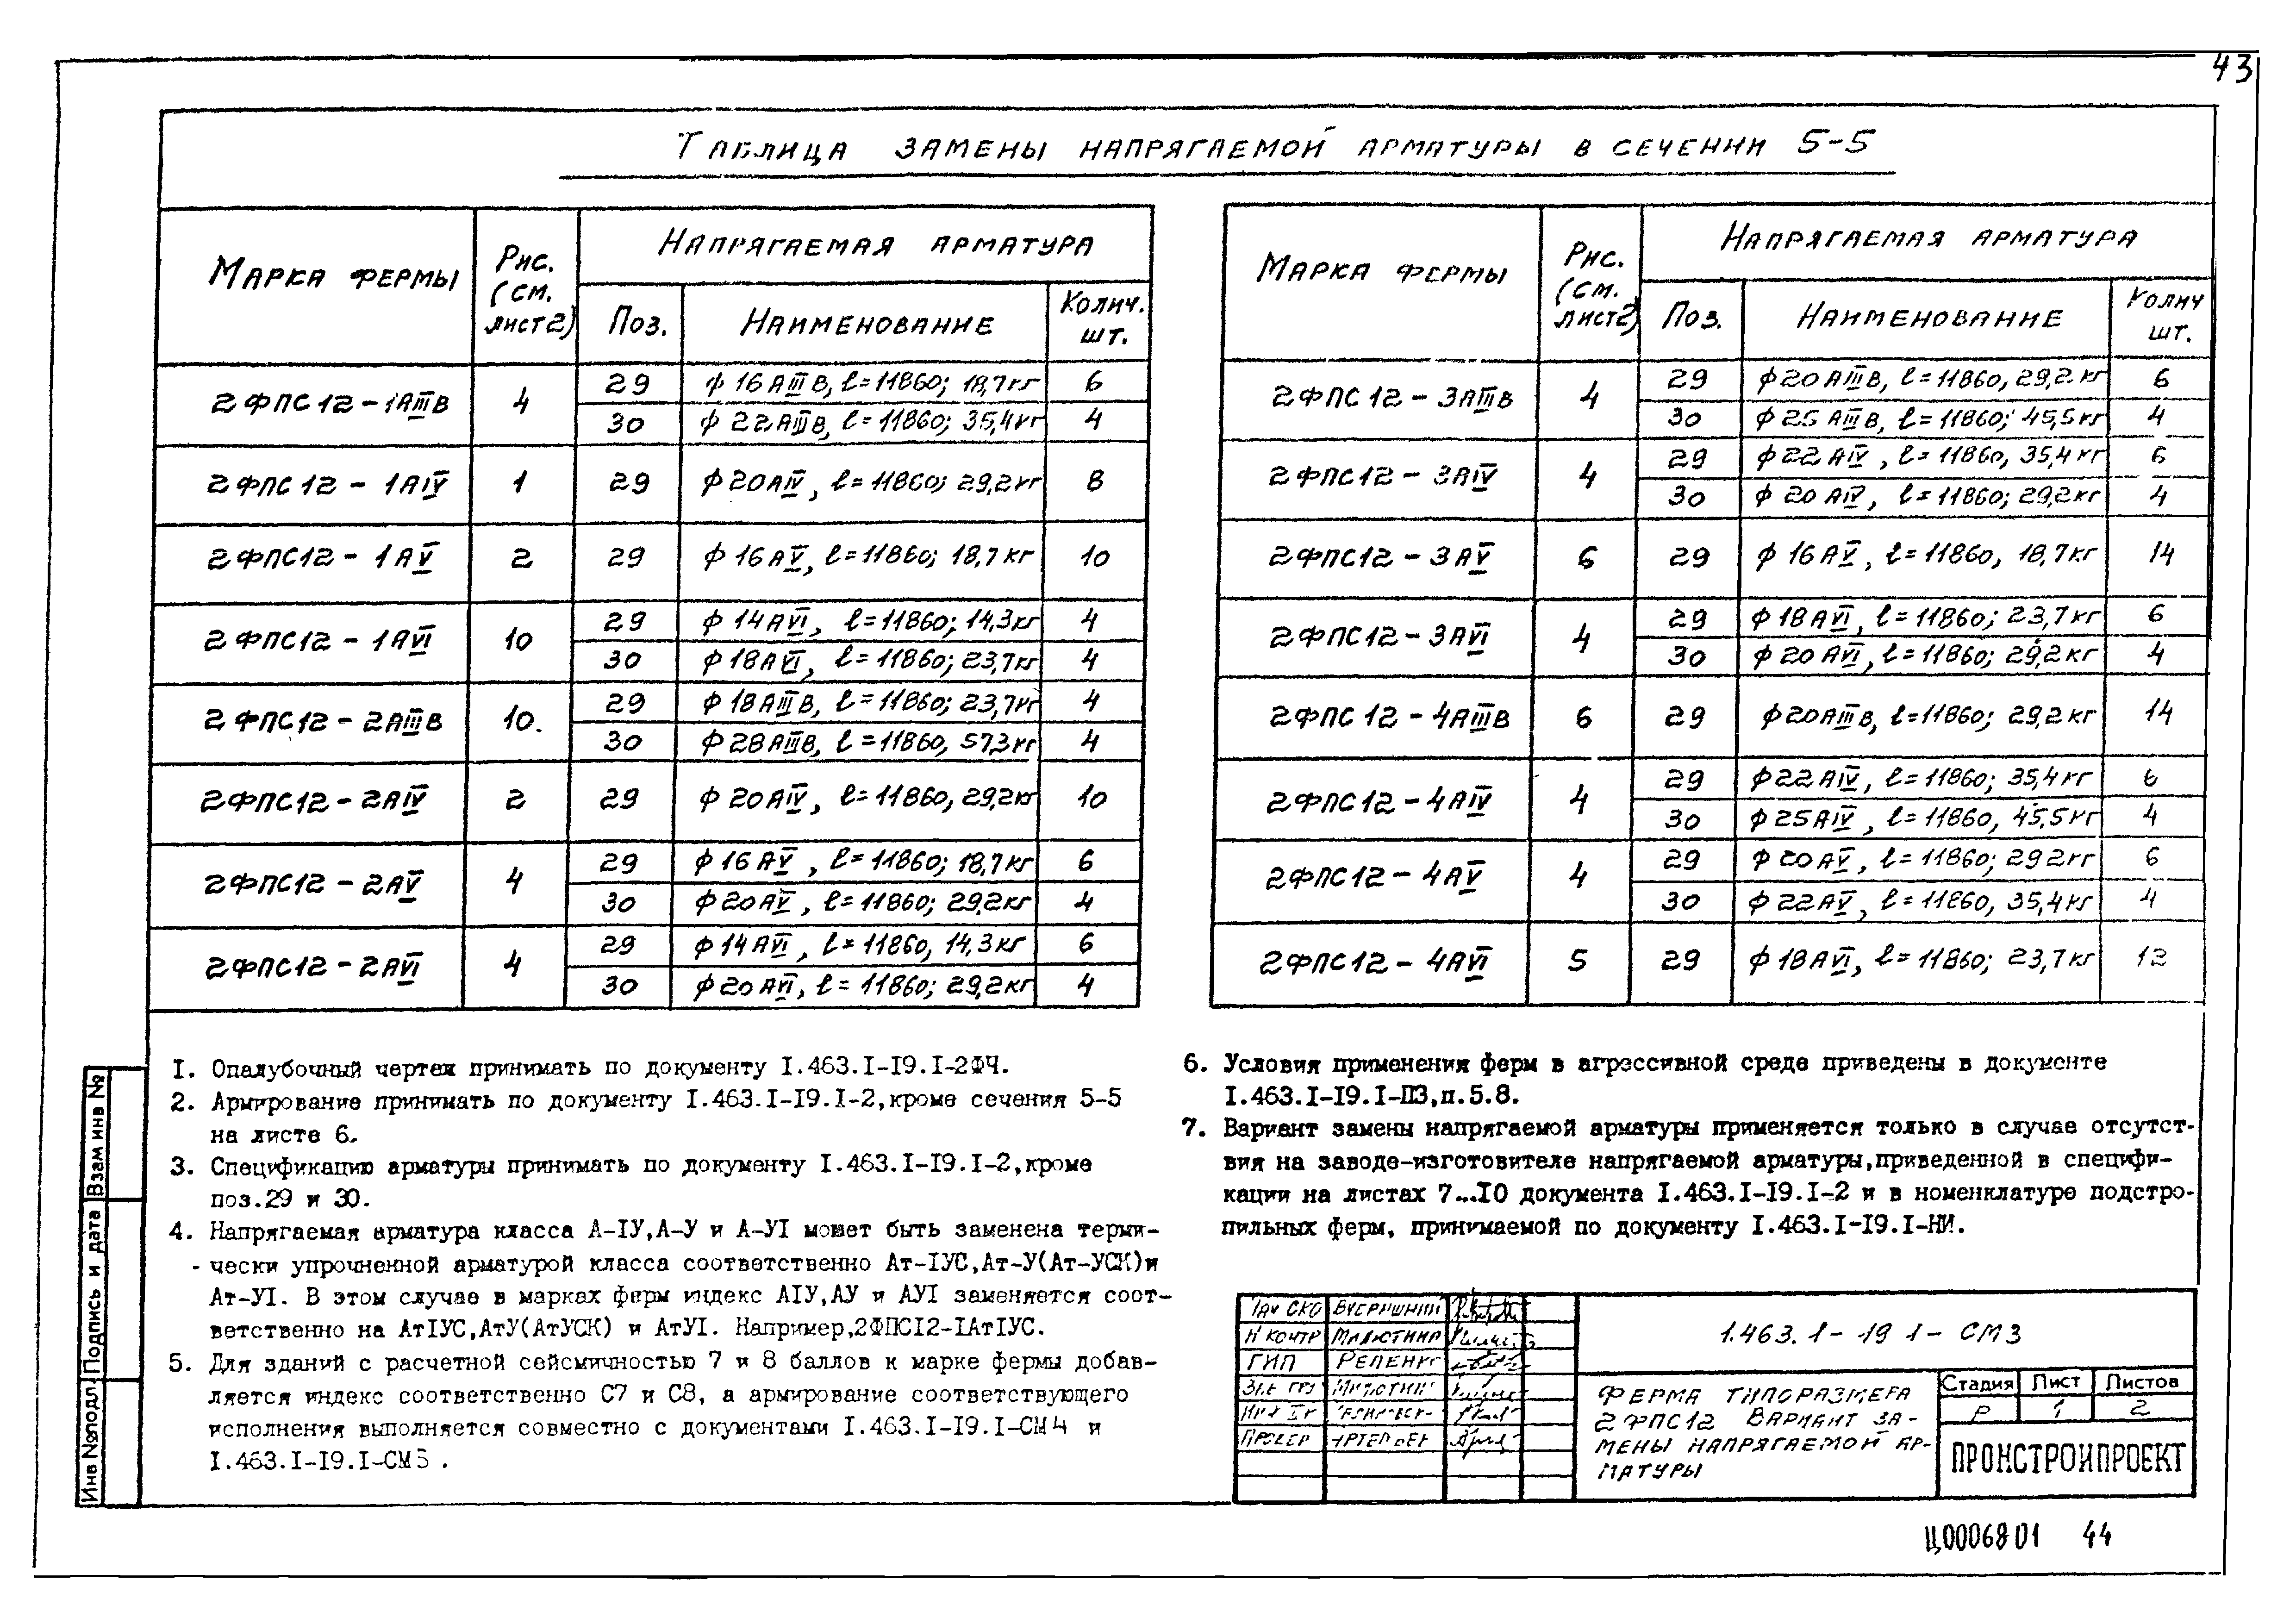 43
Таблица замены напрягаемой арматуры в сечении 5-5
Марка фермы | Рис. (см. лист 2) | Напрягаемая арматура
Поз. | Наименование | Колич. шт.
2ФПС12-1АIIIв | 4 | 29 | ф16АIIIв, l=11860; 18,7кг | 6
30 | ф22АIIIв, l=11860; 35,4кг | 4
2ФПС12-1АIV | 1 | 29 | ф20АIV, l=11860; 29,2кг | 8
2ФПС12-1АV | 2 | 29 | ф16АV, l=11860; 18,7кг | 10
2ФПС12-1АVI | 10 | 29 | ф14АVI, l=11860; 14,3кг | 4
30 | ф18АVI, l=11860; 23,7кг | 4
2ФПС12-2АIIIв | 10. | 29 | ф18АIIIв, l=11860; 23,7кг | 4
30 | ф28АIIIв, l=11860, 57,3кг | 4
2ФПС12-2АIV | 2 | 29 | ф20АIV, l=11860, 29,2кг | 10
2ФПС12-2АV | 4 | 29 | ф16АV, l=11860; 18,7кг | 6
30 | ф20АV, l=11860; 29,2кг | 4
2ФПС12-2АVI | 4 | 29 | ф14АVI, l=11860, 14,3кг | 6
30 | ф20АVI, l=11860; 29,2кг | 4
Марка фермы | Рис. (см. лист 2) | Напрягаемая арматура
Поз. | Наименование | Колич шт.
2ФПС12-3АIIIв | 4 | 29 | ф20АIIIв, l=11860, 29,2кг | 6
30 | ф25АIIIв, l=11860; 45,5кг | 4
2ФПС12-3АIV | 4 | 29 | ф22АIV, l=11860, 35,4кг | 6
30 | ф20АIV, l=11860; 29,2кг | 4
2ФПС12-3АV | 6 | 29 | ф16АV, l=11860, 18,7кг | 14
2ФПС12-3АVI | 4 | 29 | ф18АVI, l=11860; 23,7кг | 6
30 | ф20АVI, l=11860; 29,2кг | 4
2ФПС12-4АIIIв | 6 | 29 | ф20АIIIв, l=11860; 29,2кг | 14
2ФПС12-4АIV | 4 | 29 | ф22АIV, l=11860; 35,4кг | 6
30 | ф25АIV, l=11860, 45,5кг | 4
2ФПС12-4АV | 4 | 29 | ф20АV, l=11860; 29,2кг | 6
30 | ф22АV, l=11860, 35,4кг | 4
2ФПС12-4АVI | 5 | 29 | ф18АVI, l=11860; 23,7кг | 12
1. Опалубочный чертеж принимать по документу I.463.I-I9.I-2ФЧ.
2. Армирование принимать по документу I.463.I-I9.I-2,кроме сечения 5-5
на листе 6.
3. Спецификацию арматуры принимать по документу I.463.I-I9.I-2,кроме
поз.29 и 30.
4. Напрягаемая арматура класса А-IУ,А-У и А-УI может быть заменена терми-
чески упрочненной арматурой класса соответственно Ат-IУС,Ат-У(Ат-УСК)и
Ат-УI. В этом случае в марках ферм индекс АIУ,АУ и АУI заменяется соот-
ветственно на АтIУС,АтУ(АтУСК) и АтУI. Например,2ФПСI2-IАтIУС.
5. Для зданий с расчетной сейсмичностью 7 и 8 баллов к марке фермы добав-
ляется индекс соответственно С7 и С8, а армирование соответствующего
исполнения выполняется совместно с документами I.463.I-I9.I-СМ4 и
I.463.I-I9.I-СМ5.
6. Условия применения ферм в агрессивной среде приведены в документе
I.463.I-I9.I-ПЗ,п.5.8.
7. Вариант замены напрягаемой арматуры применяется только в случае отсутст-
вия на заводе-изготовителе напрягаемой арматуры,приведенной в специфи-
кации на листах 7...I0 документа I.463.I-I9.I-2 и в номенклатуре подстро-
пильных ферм, принимаемой по документу I.463.I-I9.I-НИ.
Инв №подл. Подпись и дата Взам инв №
Н контр Малютина
ГИП
1.463.1-19 1-СМ3
Ферма типоразмера
2ФПС12 Вариант за-
мены напрягаемой ар-
матуры
Стадия Лист Листов
Р 1 2
ПРОМСТРОЙПРОЕКТ
Ц00068 01 44